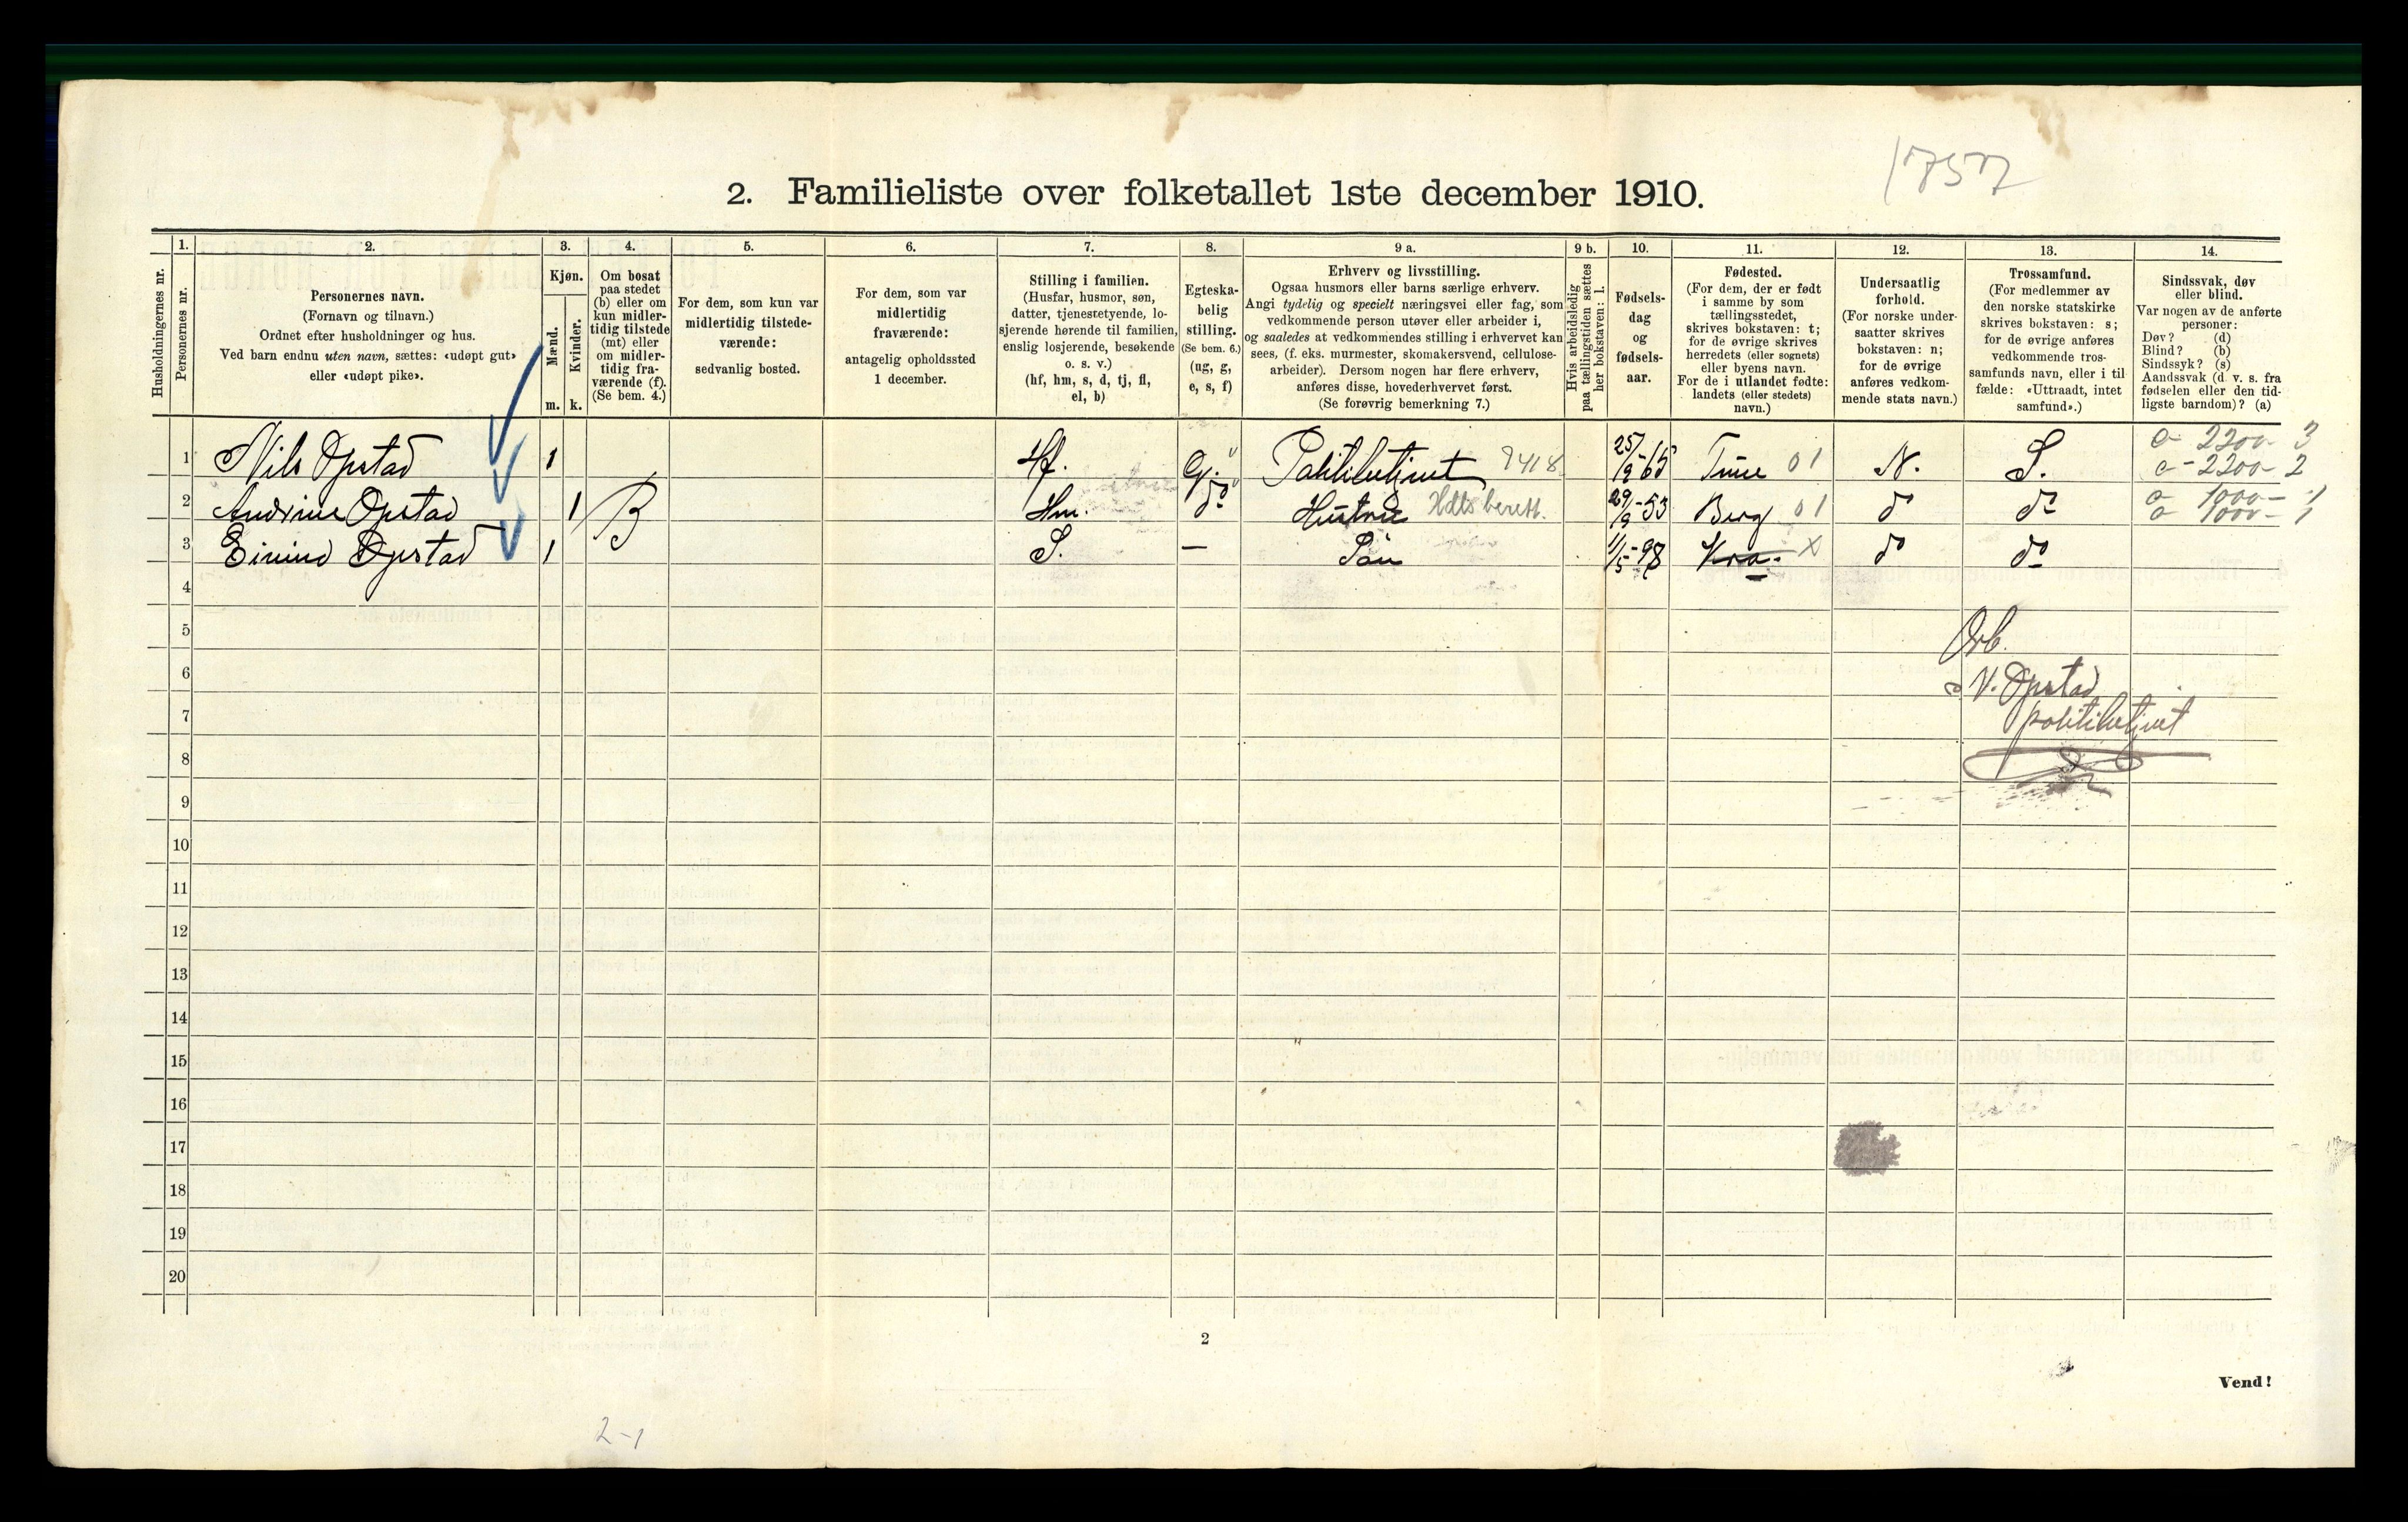 1757
2. Familieliste over folketallet 1ste december 1910.
Husholdningernes nr.
1.
Personernes nr.
2.
Personernes navn.
(Fornavn og tilnavn.)
Ordnet efter husholdninger og hus.
Ved barn endnu uten navn, sættes: «udøpt gut»
eller «udøpt pike».
3.
Kjøn.
Mænd.
Kvinder.
m.
k.
4.
Om bosat
paa stedet
(b) eller om
kun midler-
tidig tilstede
(mt) eller
om midler-
tidig fra-
værende (f).
(Se bem. 4.)
5.
For dem, som kun var
midlertidig tilstede-
værende:
sedvanlig bosted.
6.
For dem, som var
midlertidig
fraværende:
antagelig opholdssted
1 december.
7.
Stilling i familien.
(Husfar, husmor, søn,
datter, tjenestetyende, lo-
sjerende hørende til familien,
enslig losjerende, besøkende
o. s. v.)
(hf, hm, s, d, tj, fl,
el, b)
8.
Egteska-
belig
stilling.
(Se bem. 6.)
(ug, g,
e, s, f)
9 a.
Erhverv og livsstilling.
Ogsaa husmors eller barns særlige erhverv.
Angi tydelig og specielt næringsvei eller fag, som
vedkommende person utøver eller arbeider i,
og saaledes at vedkommendes stilling i erhvervet kan
sees, (f. eks. murmester, skomakersvend, cellulose-
arbeider). Dersom nogen har flere erhverv,
anføres disse, hovederhvervet først.
(Se forøvrig bemerkning 7.)
9 b.
Hvis arbeidsledig
paa tællingstiden sættes
her bokstaven: l.
10.
Fødsels-
dag
og
fødsels-
aar.
11.
Fødested.
(For dem, der er født
i samme by som
tællingsstedet,
skrives bokstaven: t;
for de øvrige skrives
herredets (eller sognets)
eller byens navn.
For de i utlandet fødte:
landets (eller stedets)
navn.)
12.
Undersaatlig
forhold.
(For norske under-
saatter skrives
bokstaven: n;
for de øvrige
anføres vedkom-
mende stats navn.)
13.
Trossamfund.
(For medlemmer av
den norske statskirke
skrives bokstaven: s;
for de øvrige anføres
vedkommende tros-
samfunds navn, eller i til-
fælde: «Uttraadt, intet
samfund».)
14.
Sindssvak, døv
eller blind.
Var nogen av de anførte
personer:
Døv? (d)
Blind? (b)
Sindssyk? (s)
Aandssvak (d. v. s. fra
fødselen eller den tid-
ligste barndom)? (a)
1 Nils Opstad 1 Hf. G. Politibetjent 9418 25/9-65 Tune 01 N. S. e- 2200- 3
e- 2200- 2
2 Andrine Opstad 1 B Hm. do Hustru Hdls berett. 29/9-53 Berg 01 do do o 1000- 1
o 1000- 1
3 Eivind Opstad 1 S. — Søn 11/5-98 Kra. X do do
4
5 Ærb.
6 N. Opstad
7 politibetjent
8
9
10
11
12
13
14
15
16
17
18
19
20
2
Vend!
2-1